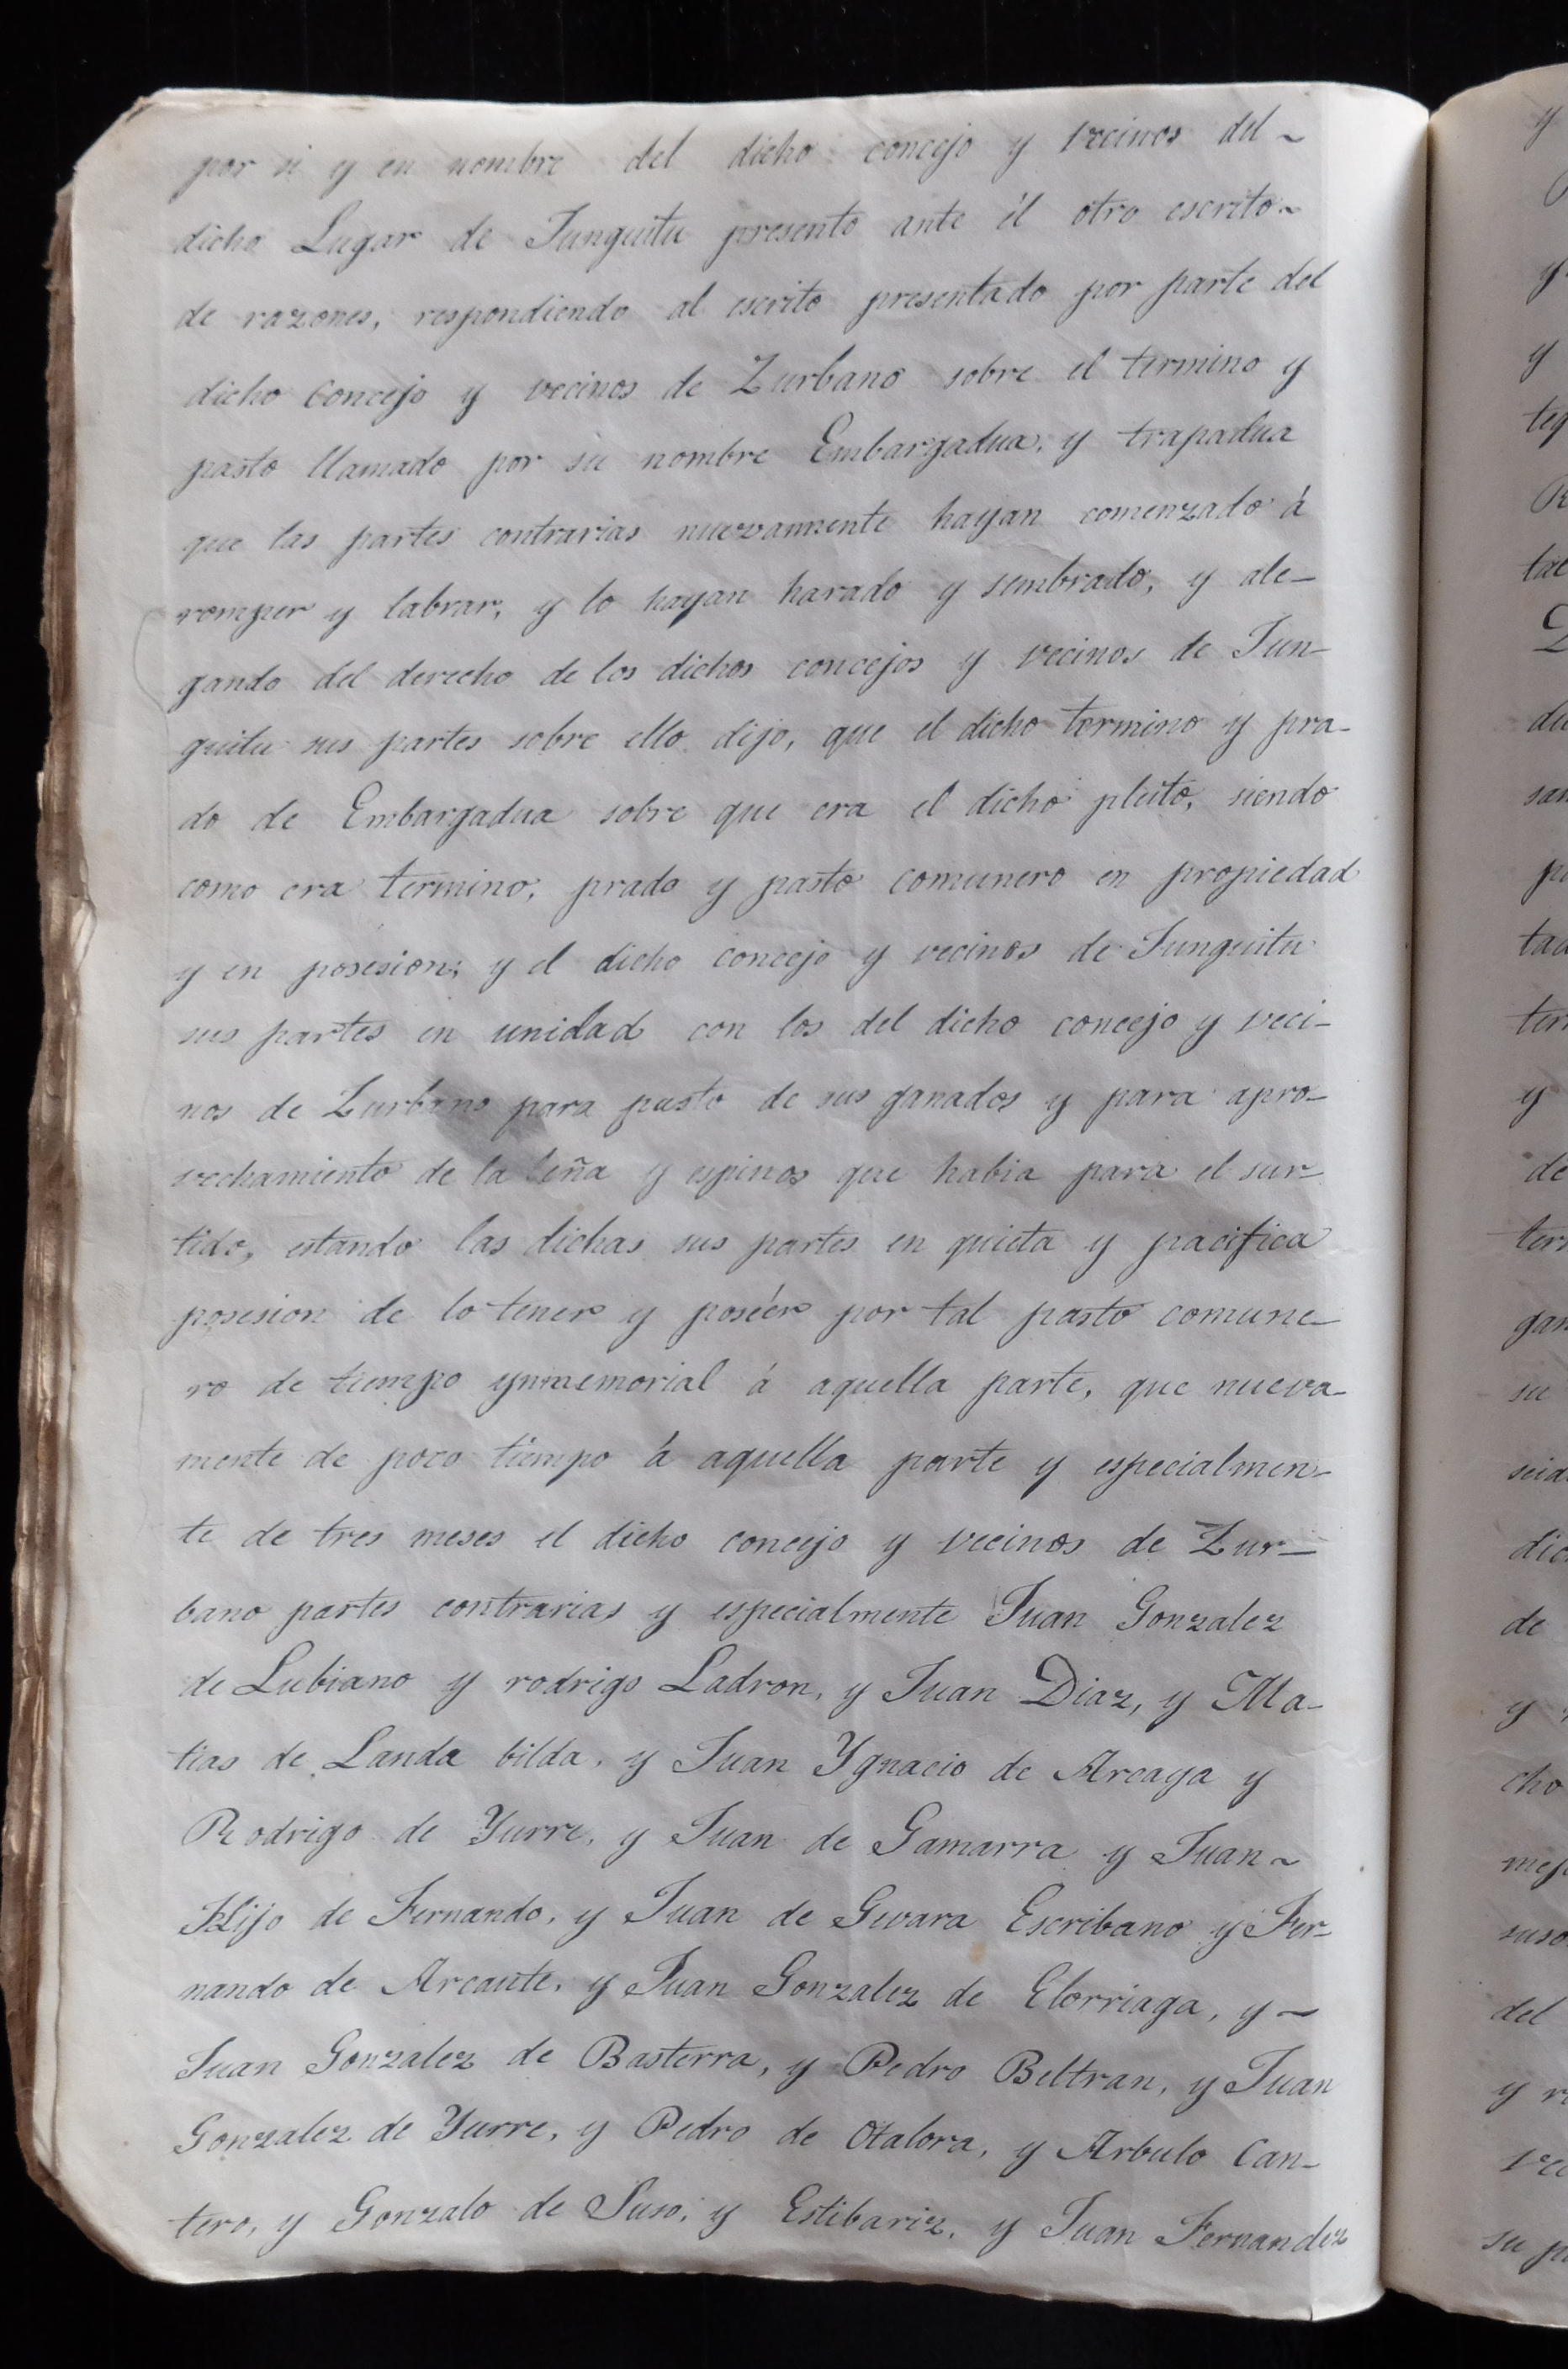 por si y en nombre del dicho concejo y vecinos del ~
dicho Lugar de Junguitu presento ante él otro escrito ~
de razones, respondiendo al escrito presentado por parte del
dicho Concejo y vecinos de Zurbano sobre el termino y
pasto llamado por su nombre Embargadua, y trapadua
que las partes contrarias nuevamente hayan comenzado á
romper y labrar, y lo hayan harado y sembrado, y ale-
gando del derecho de los dichos concejos y vecinos de Jun-
guitu sus partes sobre ello dijo, que el dicho termino y pra-
do de Embargadua sobre que era el dicho pleito, siendo
como era termino, prado y pasto comunero en propiedad
y en posesion; y el dicho concejo y vecinos de Junguitu
sus partes en unidad con los del dicho concejo y veci-
nos de Zurbano para pasto de sus ganados y para apro-
vechamiento de la leña y espinos que habia para el sur-
tido, estando las dichas sus partes en quieta y pacifica
posesion de lo tener y poséer por tal pasto comune-
ro de tiempo ynmemorial á aquella parte, que nueva-
mente de poco tiempo á aquella parte y especialmen-
te de tres meses el dicho concejo y vecinos de Zur-
bano partes contrarias y especialmente Juan Gonzalez
de Lubiano y rodrigo Ladron, y Juan Diaz, y Ma-
tias de Landa bilda, y Juan Ygnacio de Arcaya y
Rodrigo de Yurre, y Juan de Gamarra y Juan ~
Hijo de Fernando, y Juan de Gevara Escribano y Fer-
nando de Arcaute, y Juan Gonzalez de Elorriaga, y ~
Juan Gonzalez de Basterra, y Pedro Beltran, y Juan
Gonzalez de Yurre, y Pedro de Otalora, y Arbulo Can-
tero, y Gonzalo de Suso, y Estibariz, y Juan Fernandez
y
y
y
teg
R
tac
san
tac
ter
y
de
ter
gan
su
dic
de
y
cho
del
y
su